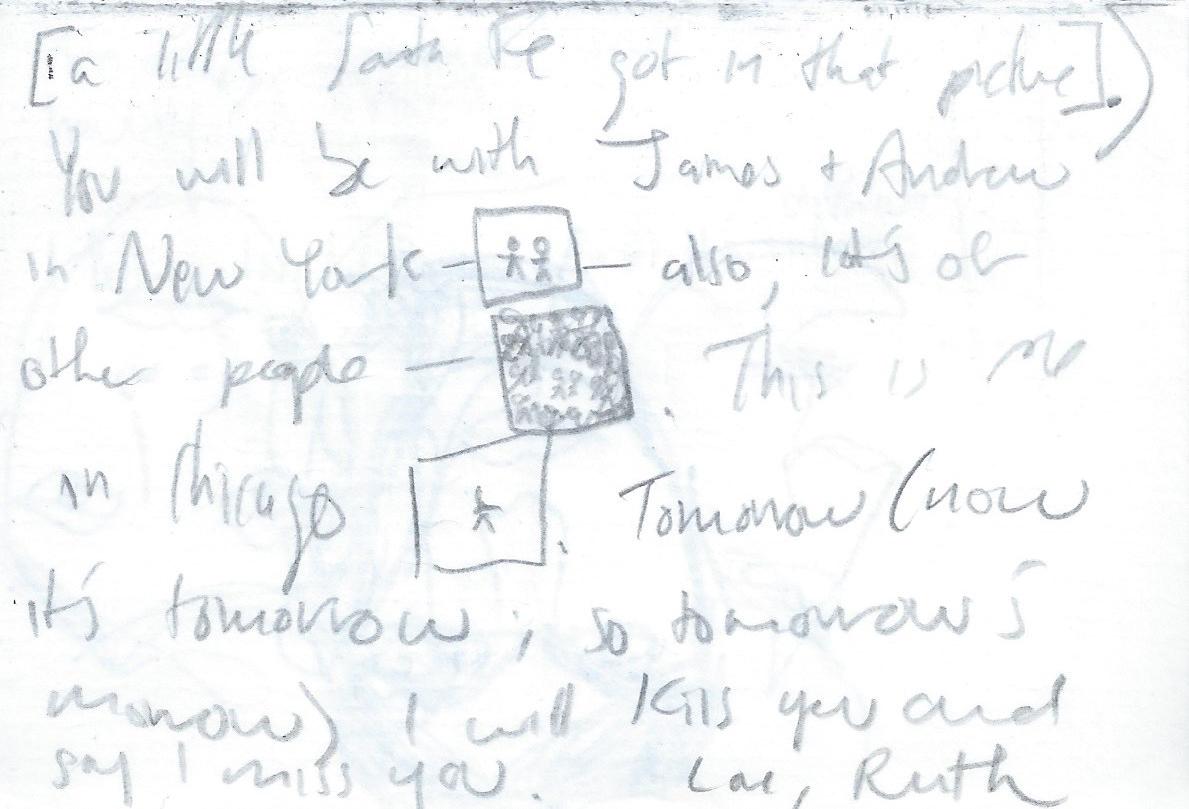 [a little Santa Fe got in that picture].)
You will be with James + Andrew
in New York — — also, lots of
other people — . This is me
in Chicago . Tomorrow (now
it's tomorrow; so tomorrow's
morrow) I will kiss you and
say I miss you. Love, Ruth